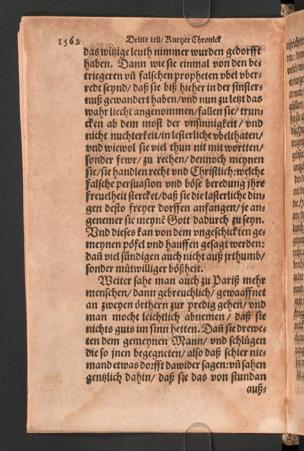 1562
Dritte teil/Kurzer Chronick
das witzige leuth nimmer wurden gedorfft
haben. Dann wie sie einmal von den be-
triegeren vñ falschen propheten vbel vber-
redt seynd/daß sie biß hieher in der finster-
nuß gewandert haben/vnd nun zu letzt das
wahr liecht angenommen/fallen sie/trun
cken ab dem most der vnsinnigkeit/vnd
nicht nuchterkeit/in lesterliche vbelthaten/
vnd wiewol sie viel thun nit mit worten/
sonder fewr/zu rechen/dennoch meynen
sie/sie handlen recht vnd Christlich:welche
falsche persuasion vnd böse beredung jhre
freuelheit stercket/daß sie die lasterliche din
gen desto freyer dorffen anfangen/je an-
genemer sie meynē Gott dadurch zu seyn.
Vnd dieses kan von dem vngeschickten ge-
meynen pöfel vnd hauffen gesagt werden:
dañ viel sündigen auch nicht auß jrthumb/
sonder mütwilliger bößheit.
Weiter sahe man auch zu Pariß mehr
menschen/dann gebreuchlich/gewaaffnet
an zweyen örthern zur predig gehen/vnd
man mocht leichtlich abnemen/daß sie
nichts guts im sinn hetten. Dañ sie drewe-
ten dem gemeynen Mann/vnd schlügen
die so jnen begegneten/also daß schier nie-
mand etwas dorfft dawider sagen:vñ sahen
gentzlich dahin/daß sie das von stundan
auß-